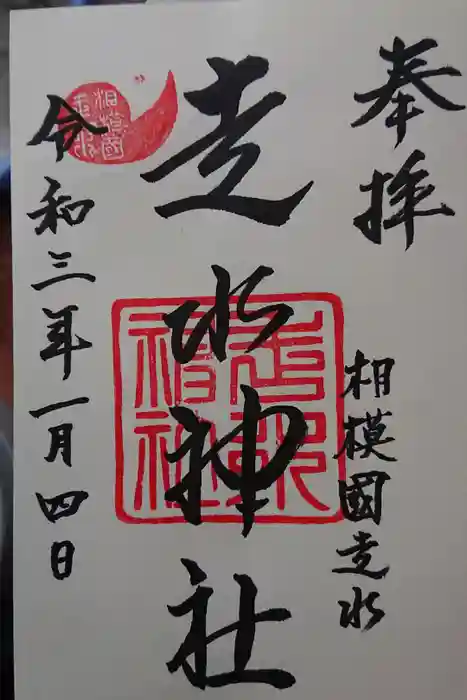 奉拝
相模國走水
走水神社
令和三年一月四日
相模國
走水